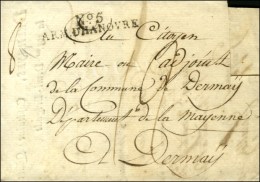 8
No. 5
ARM. D'HANOVRE
Au Citoyen
Maire ou L'adjoint
de la Commune de Dermaÿ
Département de la Mayenne
A Dermaÿ